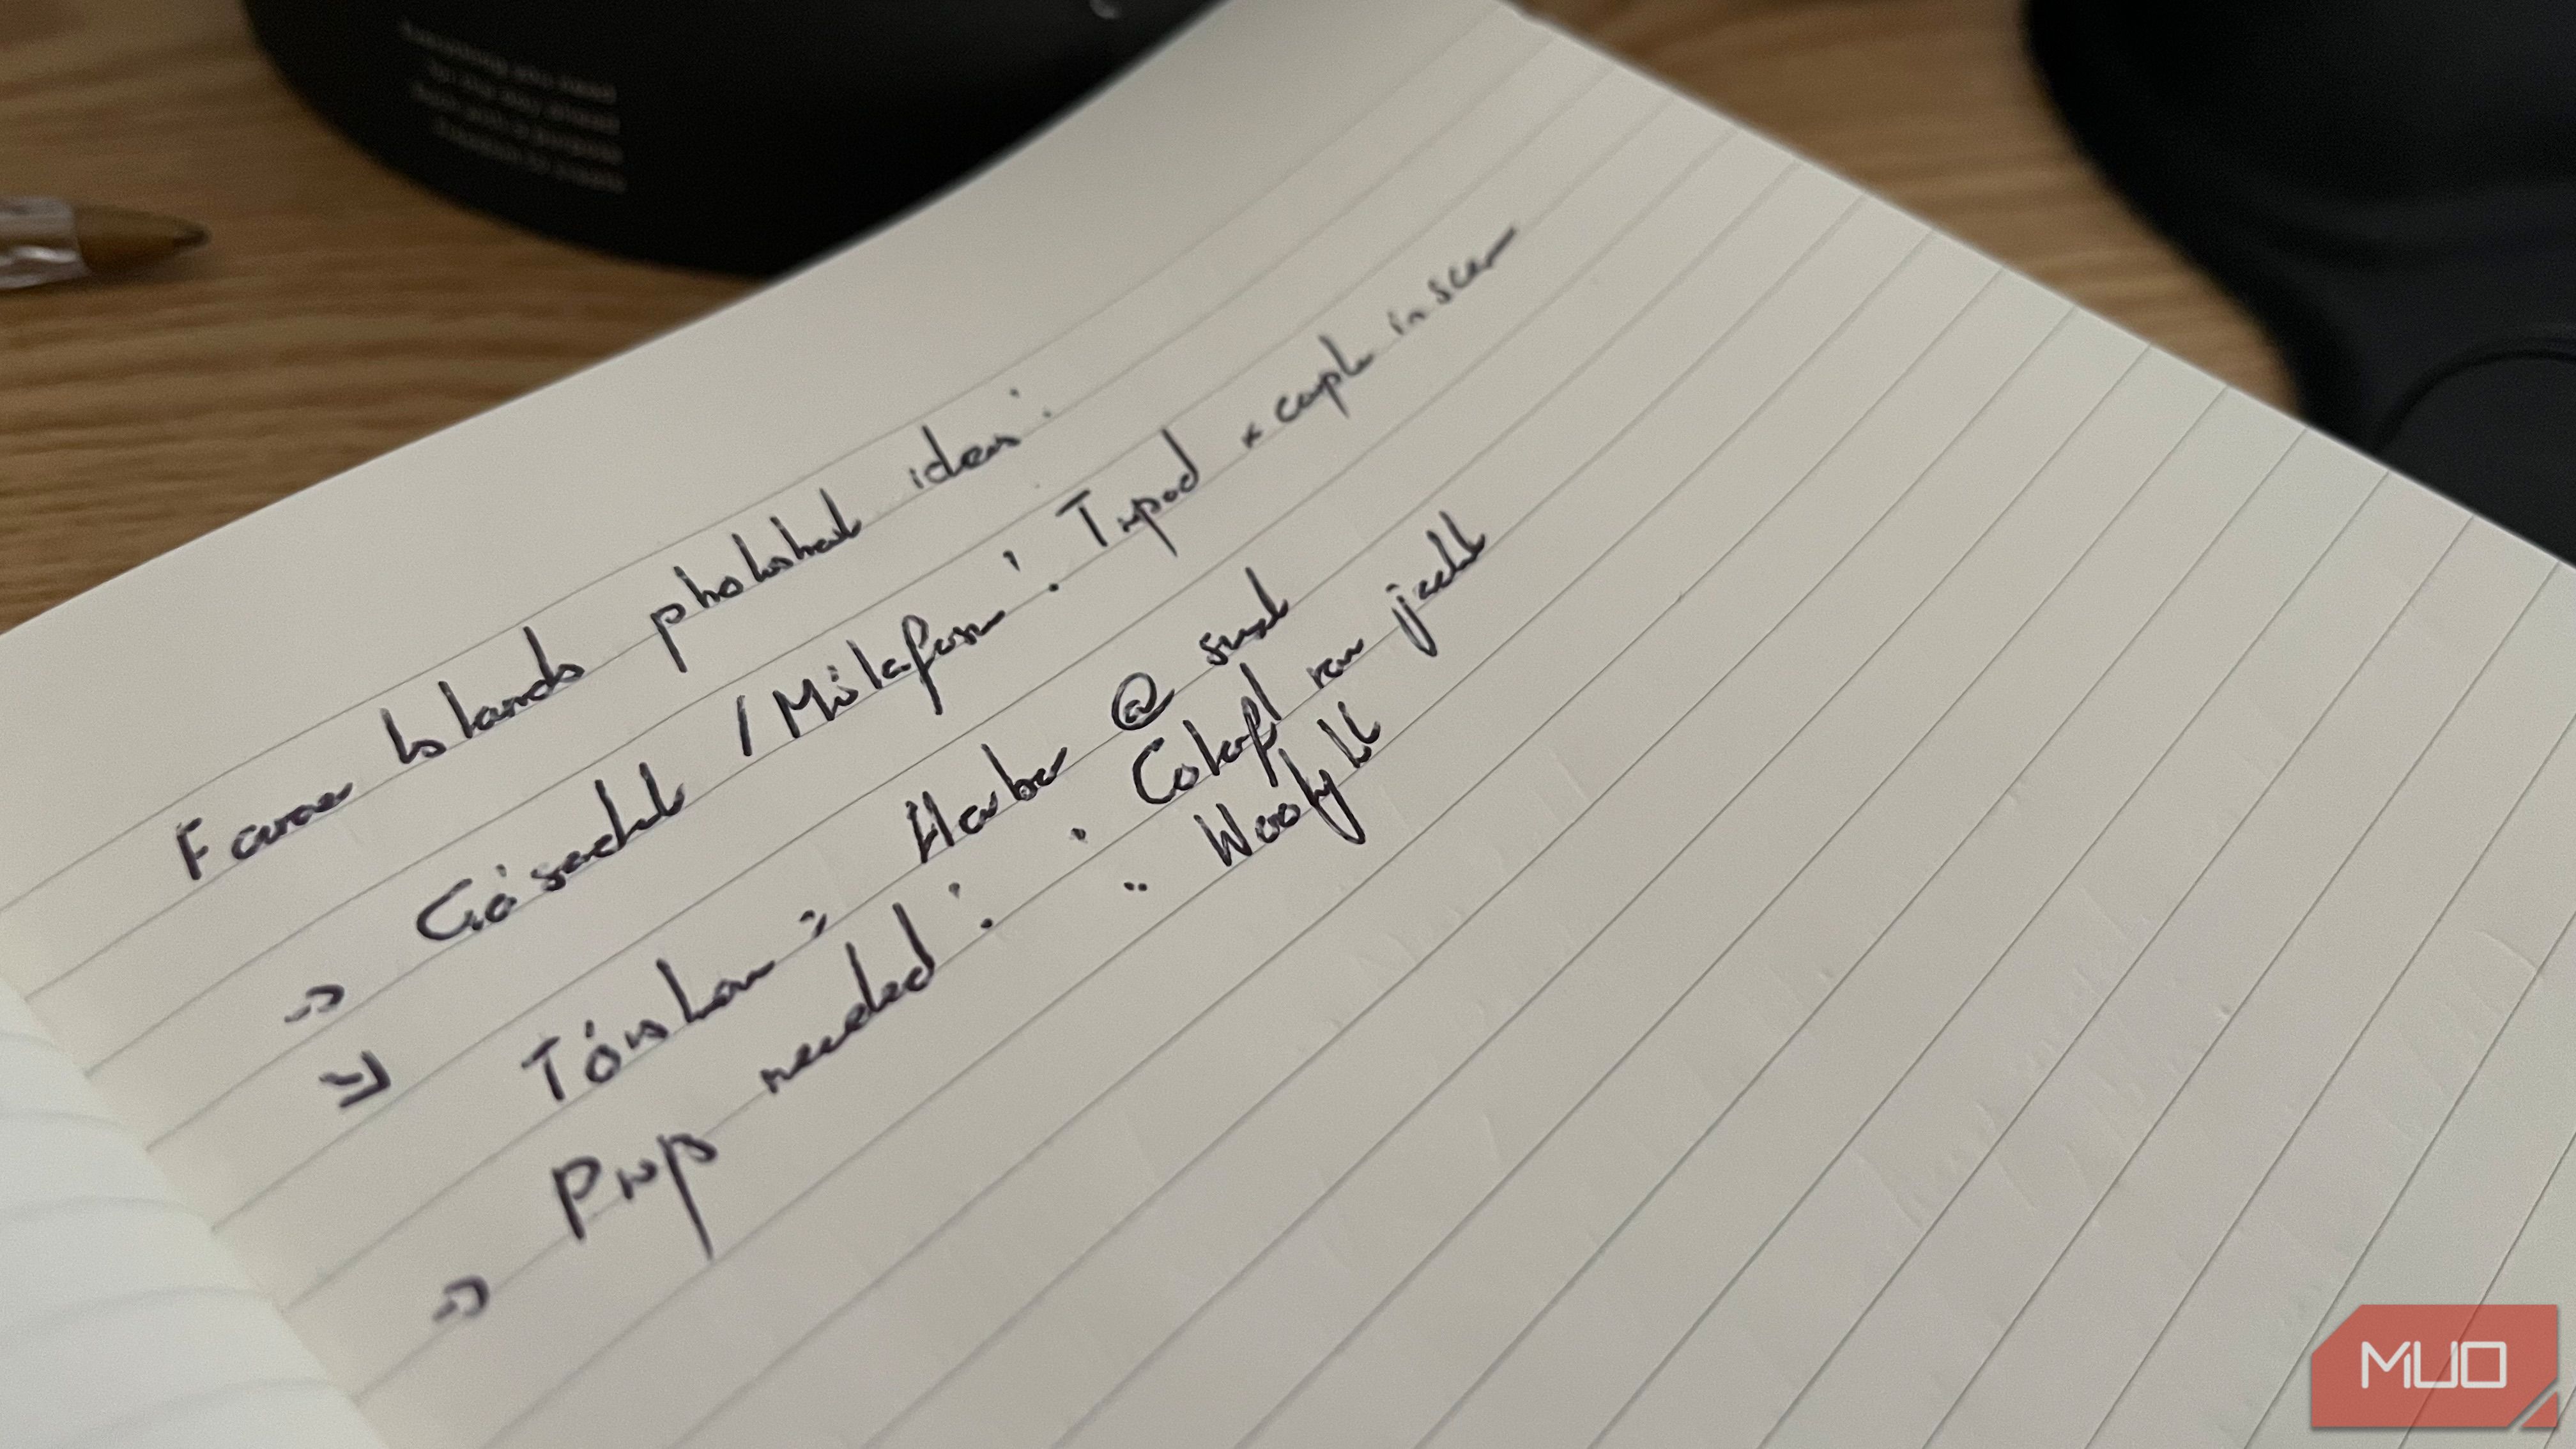 Faroe Islands photoshoot ideas:
→ Gásadalur / Múlafossur: Tripod + couple in scene
→ Tórshavn: Harbor @ sunset
→ Prop needed: · Colorful rain jacket
·· Woolly hat
MUO